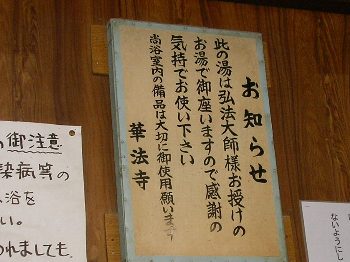 お知らせ
此の湯は弘法大師様お授けの
お湯で御座いますので感謝の
気持でお使い下さい
尚浴室内の備品は大切に御使用願います
華法寺
御注意
染病等の
浴を
い。
われましても
ないようにし